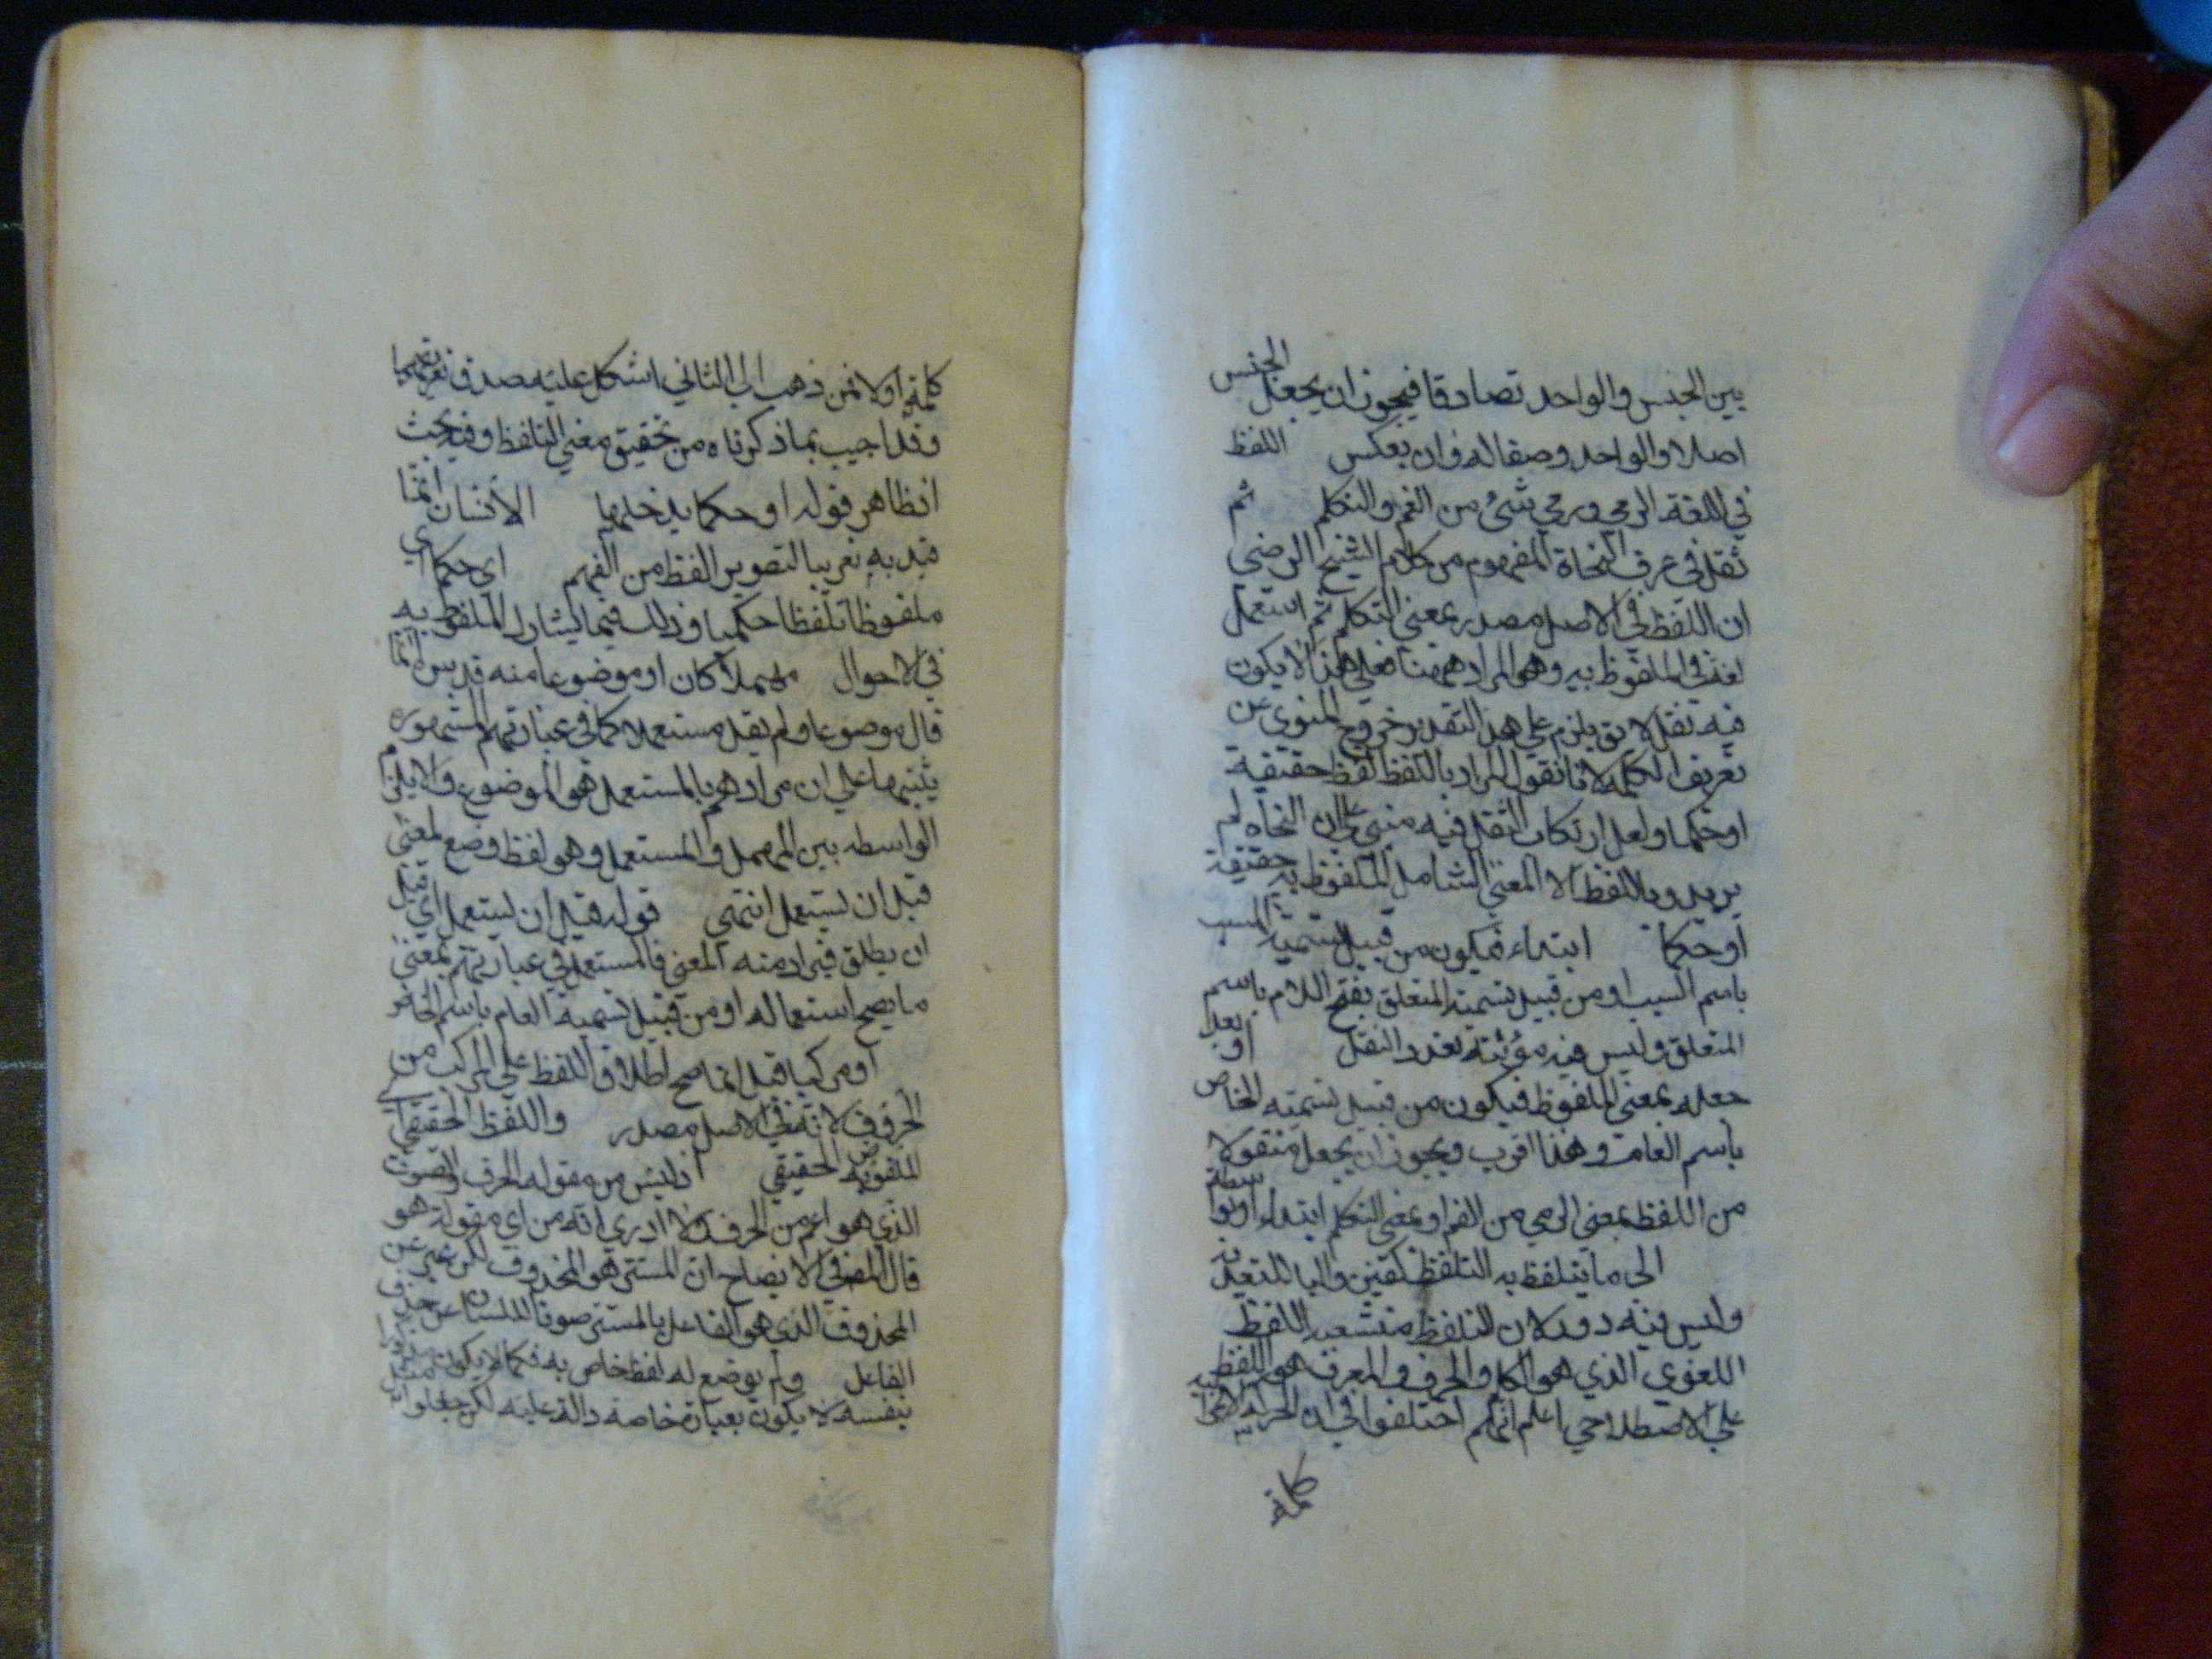 بين الجنس والواحد تصادقا فيجوز ان يجعل الجنس
اصلا والواحد وصفا له وان يعكس اللفظ
في اللغة الرمي ورمي شئ من الفم والتكلم ثم
نقل في عرف النحاة المفهوم من كلام الشيخ الرضي
ان اللفظ في الاصل مصدر بمعنى التكلم ثم استعمل
لغة في الملفوظ به وهو المراد ههنا فعلى هذا لا يكون
فيه نقل لا يق يلزم على هذا التقدير خروج المنوى عن
تعريف الكلمه لانا نقول المراد باللفظ لفظ حقيقة
اوحكما ولعل ارتكاب النقل فيه مبني على ان النحاه لم
يريدو باللفظ الا المعنى الشامل للملفوظ به حقيقة
اوحكما ابتداء فيكون من قبيل تسمية المسبب
باسم السبب او من قبيل تسمية المتعلق بفتح اللام باسم
المتعلق وليس فيه مؤنته تعدد النقل او بعد
جعله بمعنى الملفوظ فيكون من قبيل تسمية الخاص
باسم العام وهذا اقرب ويجوز ان يجعل منقولا
من اللفظ بمعنى الرمي من الفم او بمعنى التكلم ابتداء او بواسطة
الى ما يتلفظ به التلفظ كفتن والبا للتعدية
وليس فيه دور لان التلفظ منشعب اللفظ
اللغوي الذي هو الكلم والحرف والمعرف هو اللفظ
على الاصطلاحي اعلم انهم اختلفوا في ان الحركة الاعرابية
كلمة
كلمة اولا فمن ذهب الى الثاني اشكل عليه صدق تعريفها
وقد اجيب بما ذكرناه من تحقيق معنى التلفظ وفيه بحث
اذ ظاهر قوله او حكما يدخلها الانسان انما
قيد به تقريبا لتصوير اللفظ من الفهم اي حكما اي
ملفوظا تلفظا حكميا وذلك فيما يشارك الملفوظ به
في الاحوال مهملا كان او موضوعا منه قدس انما
قال موضوعا ولم يقل مستعملا كما في عباراتهم المشهوره
تنبيها على ان مرادهم بالمستعمل هو الموضوع والا يلزم
الواسطه بين المهمل والمستعمل وهو لفظ وضع لمعنى
قبل ان يستعمل انتهى قوله قبل ان يستعمل اي قبل
ان يطلق فيراد منه المعنى فالمستعمل في عباراتهم بمعنى
ما يصح استعماله او من قبيل تسمية العام باسم الخاص
او مركبا قيل انما صح اطلاق اللفظ على المركب من
الحروف لانه في الاصل مصدر واللفظ الحقيقي
الحقيقي اذ ليس من مقولة الحرف والصوت
الذي هو اعم من الحرف ولا ادري انه من اي مقولة هو
قال المصنف في الايضاح ان المستتر هو المحذوف لكن عبر عن
المحذوف الذي هو الفاعل بالمستتر صونا للسان عن حذف
الفاعل ولم يوضع له لفظ خاص به فكما لا يكون
بنفسه لا يكون بعبارة خاصة دالة عليه لكن جعلوا